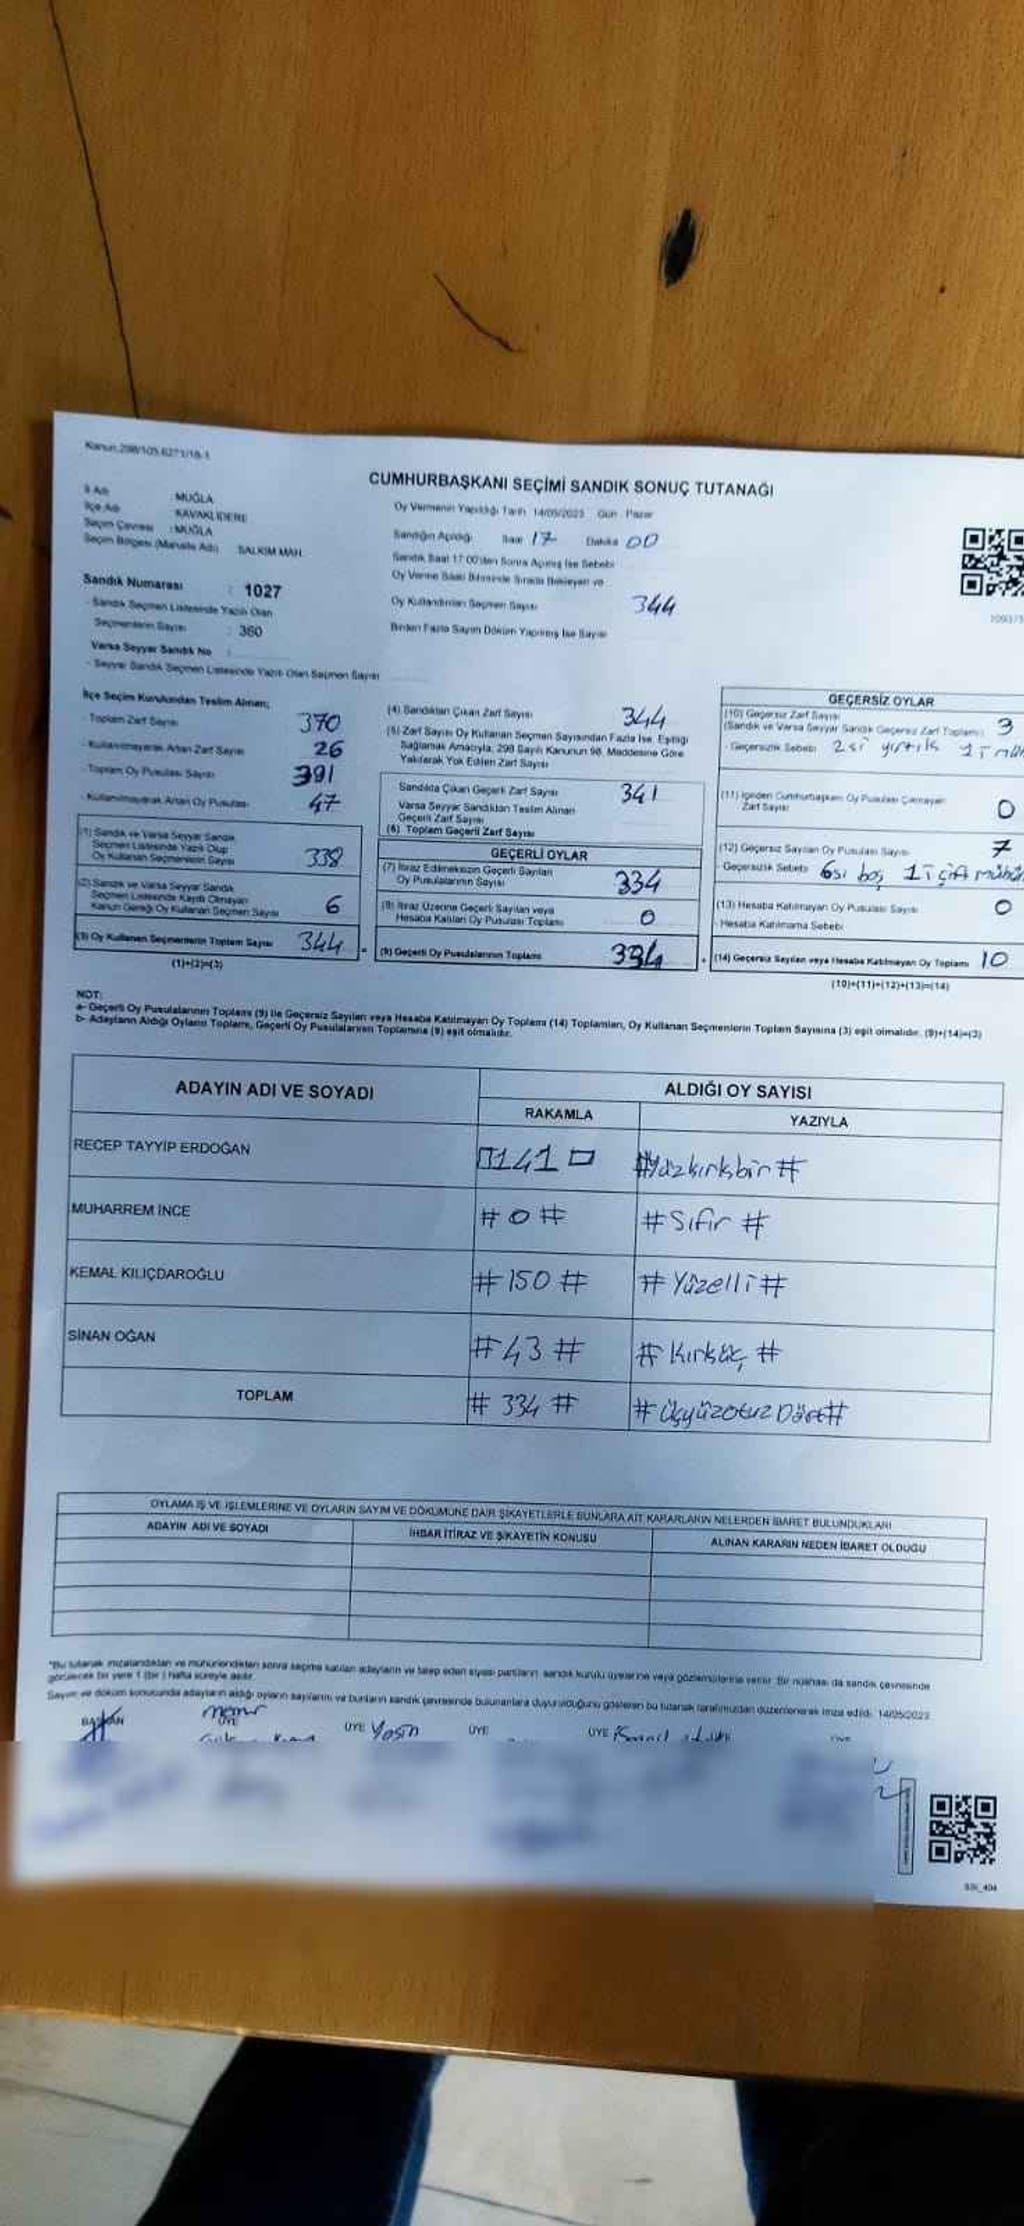 Kanun:298/105,6271/18-1
CUMHURBAŞKANI SEÇİMİ SANDIK SONUÇ TUTANAĞI
İl Adı : MUĞLA
İlçe Adı : KAVAKLIDERE
Seçim Çevresi : MUĞLA
Seçim Bölgesi (Mahalle Adı) : SALKIM MAH.
Oy Vermenin Yapıldığı Tarih 14/05/2023 Gün Pazar
Sandığın Açıldığı Saat 17 Dakika 00
Sandık Saat 17:00'den Sonra Açılmış İse Sebebi
Oy Verme Saati Bitiminde Sırada Bekleyen ve
Oy Kullandırılan Seçmen Sayısı 344
Birden Fazla Sayım Döküm Yapılmış İse Sayısı
Sandık Numarası : 1027
- Sandık Seçmen Listesinde Yazılı Olan
Seçmenlerin Sayısı : 360
Varsa Seyyar Sandık No :
- Seyyar Sandık Seçmen Listesinde Yazılı Olan Seçmen Sayısı
İlçe Seçim Kurulundan Teslim Alınan;
- Toplam Zarf Sayısı 370
- Kullanılmayarak Artan Zarf Sayısı 26
- Toplam Oy Pusulası Sayısı 391
- Kullanılmayarak Artan Oy Pusulası 47
(1) Sandık ve Varsa Seyyar Sandık
Seçmen Listesinde Yazılı Olup
Oy Kullanan Seçmenlerin Sayısı 338
(2) Sandık ve Varsa Seyyar Sandık
Seçmen Listesinde Kaydı Olmayan
Kanun Gereği Oy Kullanan Seçmen Sayısı 6
(3) Oy Kullanan Seçmenlerin Toplam Sayısı 344 =
(1)+(2)=(3)
(4) Sandıktan Çıkan Zarf Sayısı 344
(5) Zarf Sayısı Oy Kullanan Seçmen Sayısından Fazla İse, Eşitliği
Sağlamak Amacıyla, 298 Sayılı Kanunun 98. Maddesine Göre
Yakılarak Yok Edilen Zarf Sayısı
Sandıkta Çıkan Geçerli Zarf Sayısı 341
Varsa Seyyar Sandıktan Teslim Alınan
Geçerli Zarf Sayısı
(6) Toplam Geçerli Zarf Sayısı
GEÇERLİ OYLAR
(7) İtiraz Edilmeksizin Geçerli Sayılan
Oy Pusulalarının Sayısı 334
(8) İtiraz Üzerine Geçerli Sayılan veya
Hesaba Katılan Oy Pusulası Toplamı 0
(9) Geçerli Oy Pusulalarının Toplamı 334 +
GEÇERSİZ OYLAR
(10) Geçersiz Zarf Sayısı
(Sandık ve Varsa Seyyar Sandık Geçersiz Zarf Toplamı) 3
- Geçersizlik Sebebi 2 si yırtık 1 i
(11) İçinden Cumhurbaşkanı Oy Pusulası Çıkmayan
Zarf Sayısı 0
(12) Geçersiz Sayılan Oy Pusulası Sayısı 7
- Geçersizlik Sebebi 6sı boş 1 i çift
(13) Hesaba Katılmayan Oy Pusulası Sayısı 0
- Hesaba Katılmama Sebebi
(14) Geçersiz Sayılan veya Hesaba Katılmayan Oy Toplamı 10
(10)+(11)+(12)+(13)=(14)
NOT:
a- Geçerli Oy Pusulalarının Toplamı (9) ile Geçersiz Sayılan veya Hesaba Katılmayan Oy Toplamı (14) Toplamları, Oy Kullanan Seçmenlerin Toplam Sayısına (3) eşit olmalıdır. (9)+(14)=(3)
b- Adayların Aldığı Oyların Toplamı, Geçerli Oy Pusulalarının Toplamına (9) eşit olmalıdır.
ADAYIN ADI VE SOYADI
ALDIĞI OY SAYISI
RAKAMLA YAZIYLA
RECEP TAYYİP ERDOĞAN 141 #Yüzkırkbir#
MUHARREM İNCE # 0 # # Sıfır #
KEMAL KILIÇDAROĞLU # 150 # # Yüzelli #
SİNAN OĞAN # 43 # # Kırküç #
TOPLAM # 334 # # ÜçyüzotuzDört#
OYLAMA İŞ VE İŞLEMLERİNE VE OYLARIN SAYIM VE DÖKÜMÜNE DAİR ŞİKAYETLERLE BUNLARA AİT KARARLARIN NELERDEN İBARET BULUNDUKLARI
ADAYIN ADI VE SOYADI İHBAR İTİRAZ VE ŞİKAYETİN KONUSU ALINAN KARARIN NEDEN İBARET OLDUĞU
*Bu tutanak imzalandıktan ve mühürlendikten sonra seçime katılan adayların ve talep eden siyasi partilerin sandık kurulu üyelerine veya gözlemcilerine verilir. Bir nüshası da sandık çevresinde
görülecek bir yere 1 (bir) hafta süreyle asılır.
Sayım ve döküm sonucunda adayların aldığı oyların sayılarını ve bunların sandık çevresinde bulunanlara duyurulduğunu gösteren bu tutanak tarafımızdan düzenlenerek imza edildi. 14/05/2023
BAŞKAN ÜYE ÜYE Yasin ÜYE ÜYE